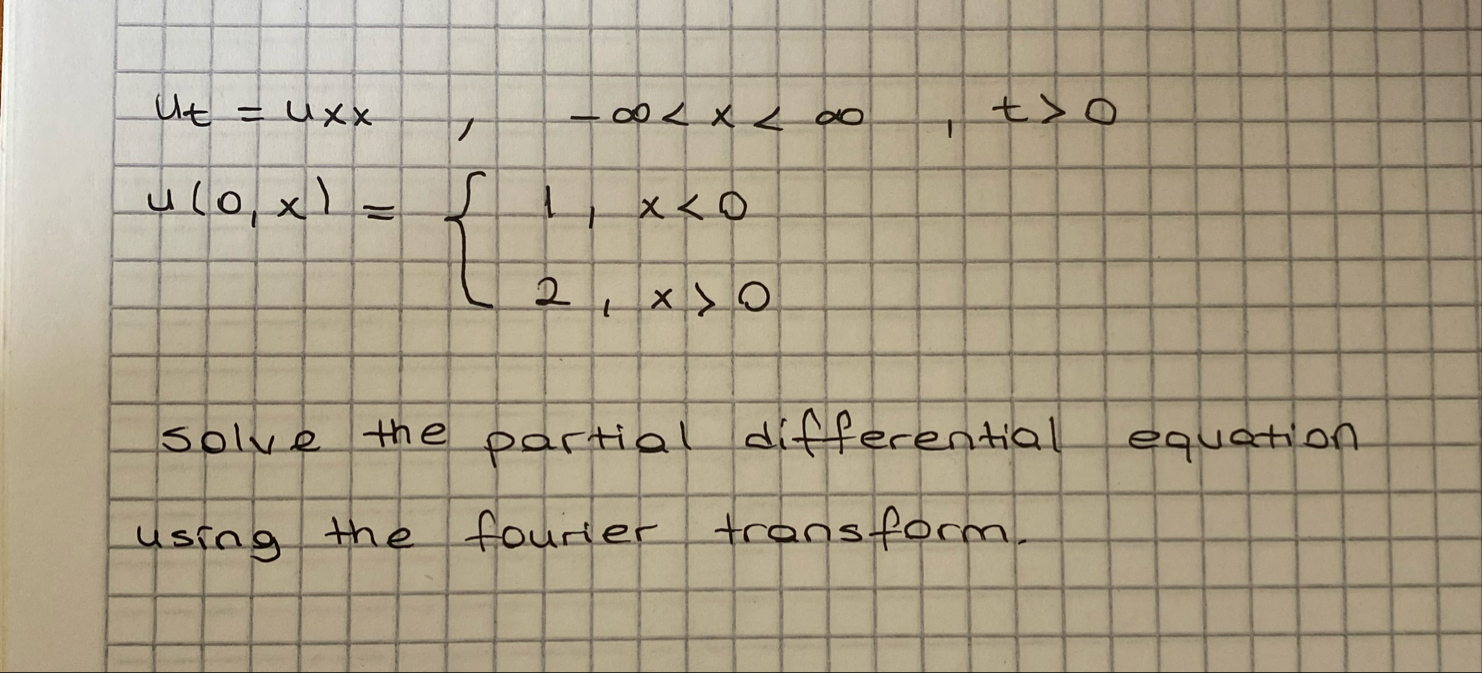 ut = uxx , -∞ < x < ∞ , t > 0
u(0, x) = { 1, x < 0
2, x > 0
solve the partial differential equation
using the fourier transform.